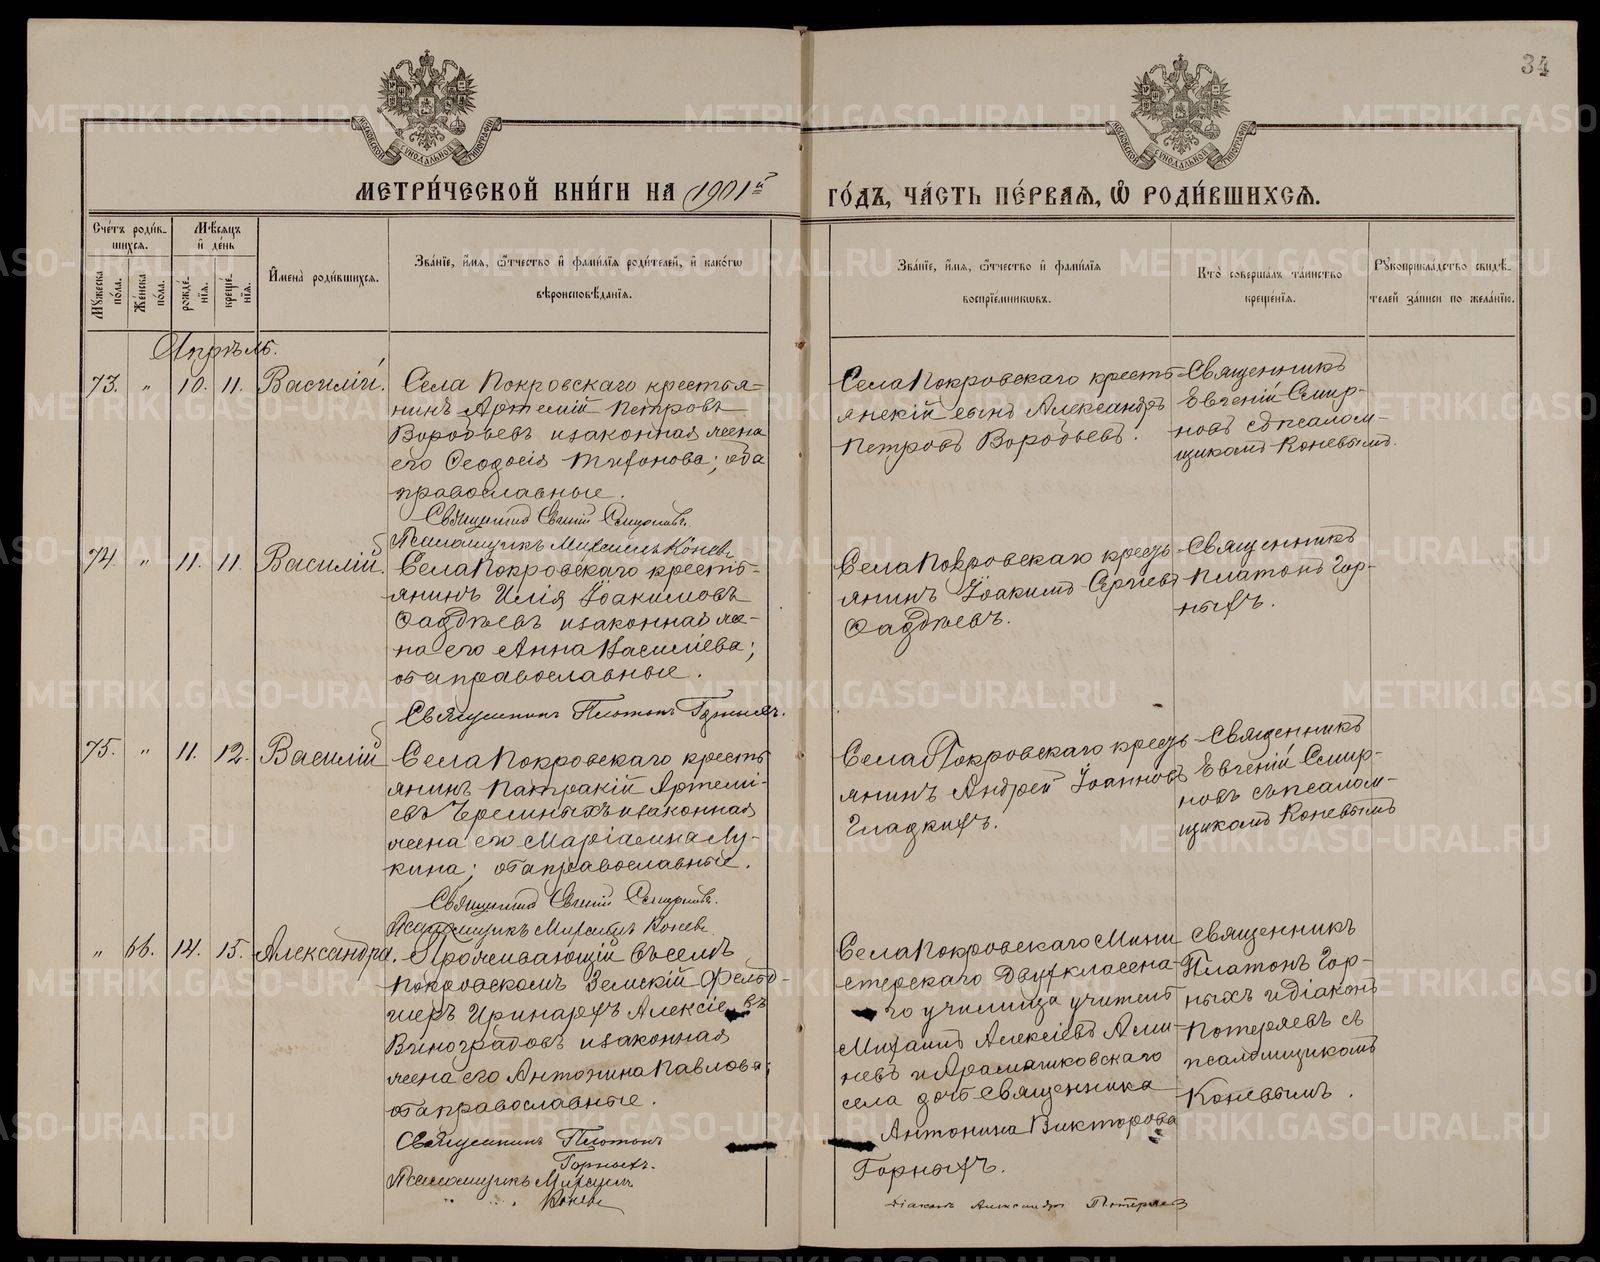 34
МЕТРИ́ЧЕСКОЙ КНИ́ГИ НА 1901й
ГО́ДЪ, ЧА́СТЬ ПЕ́РВАЯ, Ѽ РОДИ́ВШИХСЯ.
Сче́тъ роди́в-
шихся.
Мꙋжеска по́ла.
Же́нска по́ла.
Мѣ́сяцъ и де́нь
рожде́-
нія.
креще́-
нія.
Имена̀ роди́вшихся.
Зва́ніе, и́мя, ѻ́тчество и фами́лія роди́телей, и како́гѡ
вѣроисповѣ́данія.
Зва́ніе, и́мя, ѻ́тчество и фами́лія
воспріе́мниковъ.
Кто̀ соверша́лъ та́инство
креще́нія.
Рꙋкоприкла́дство свидѣ́-
телей за́писи по жела́нію.
Апрѣль.
73. " 10. 11. Василій.
Села Покровскаго крестья=
нинъ Артемій Петровъ
Воробьевъ и законная жена
его Ѳеодосія Трифонова; оба
православные.
Священникъ Евгеній Смирновъ.
Псаломщикъ Михаилъ Коневъ
Села Покровскаго кресть-
янскій сынъ Александръ
Петровъ Воробьевъ.
Священникъ
Евгеній Смир-
новъ съ псалом-
щикомъ Коневымъ.
74. " 11. 11. Василій.
Села Покровскаго кресть=
янинъ Илія Іоакимовъ
Ѳаддѣевъ и законная же-
на его Анна Василіева;
оба православные.
Священникъ Платонъ Горныхъ.
Села Покровскаго кресть-
янинъ Іоакимъ Сергіевъ
Ѳаддѣевъ.
Священникъ
Платонъ Гор-
ныхъ.
75. " 11. 12. Василій
Села Покровскаго кресть
янинъ Патракій Артемі-
евъ Черемныхъ и законная
жена его Маріамна Лу-
кина; оба православные.
Священникъ Евгеній Смирновъ.
Псаломщикъ Михаилъ Коневъ
Села Покровскаго кресть
янинъ Андрей Іоанновъ
Гладкихъ.
Священникъ
Евгеній Смир-
новъ съ псалом-
щикомъ Коневымъ
" 66. 14. 15. Александра.
Проживающій въ селѣ
Покровскомъ Земскій Фельд-
шеръ Иринархъ Алексіевъ
Виноградовъ и законная
жена его Антонина Павлова;
оба православные.
Священникъ Платонъ
Горныхъ.
Псаломщикъ Михаилъ
Коневъ
Села Покровскаго Мини
стерскаго Двухкласена-
го училища учитель
Михаилъ Алексіевъ Ами
невъ и Арамашковскаго
села дочь Священника
Антонина Викторова
Горныхъ.
Діаконъ Александръ Потеряевъ
Священникъ
Платонъ Гор-
ныхъ и діаконъ
Потеряевъ съ
псаломщикомъ
Коневымъ.
METRIKI.GASO-URAL.RU